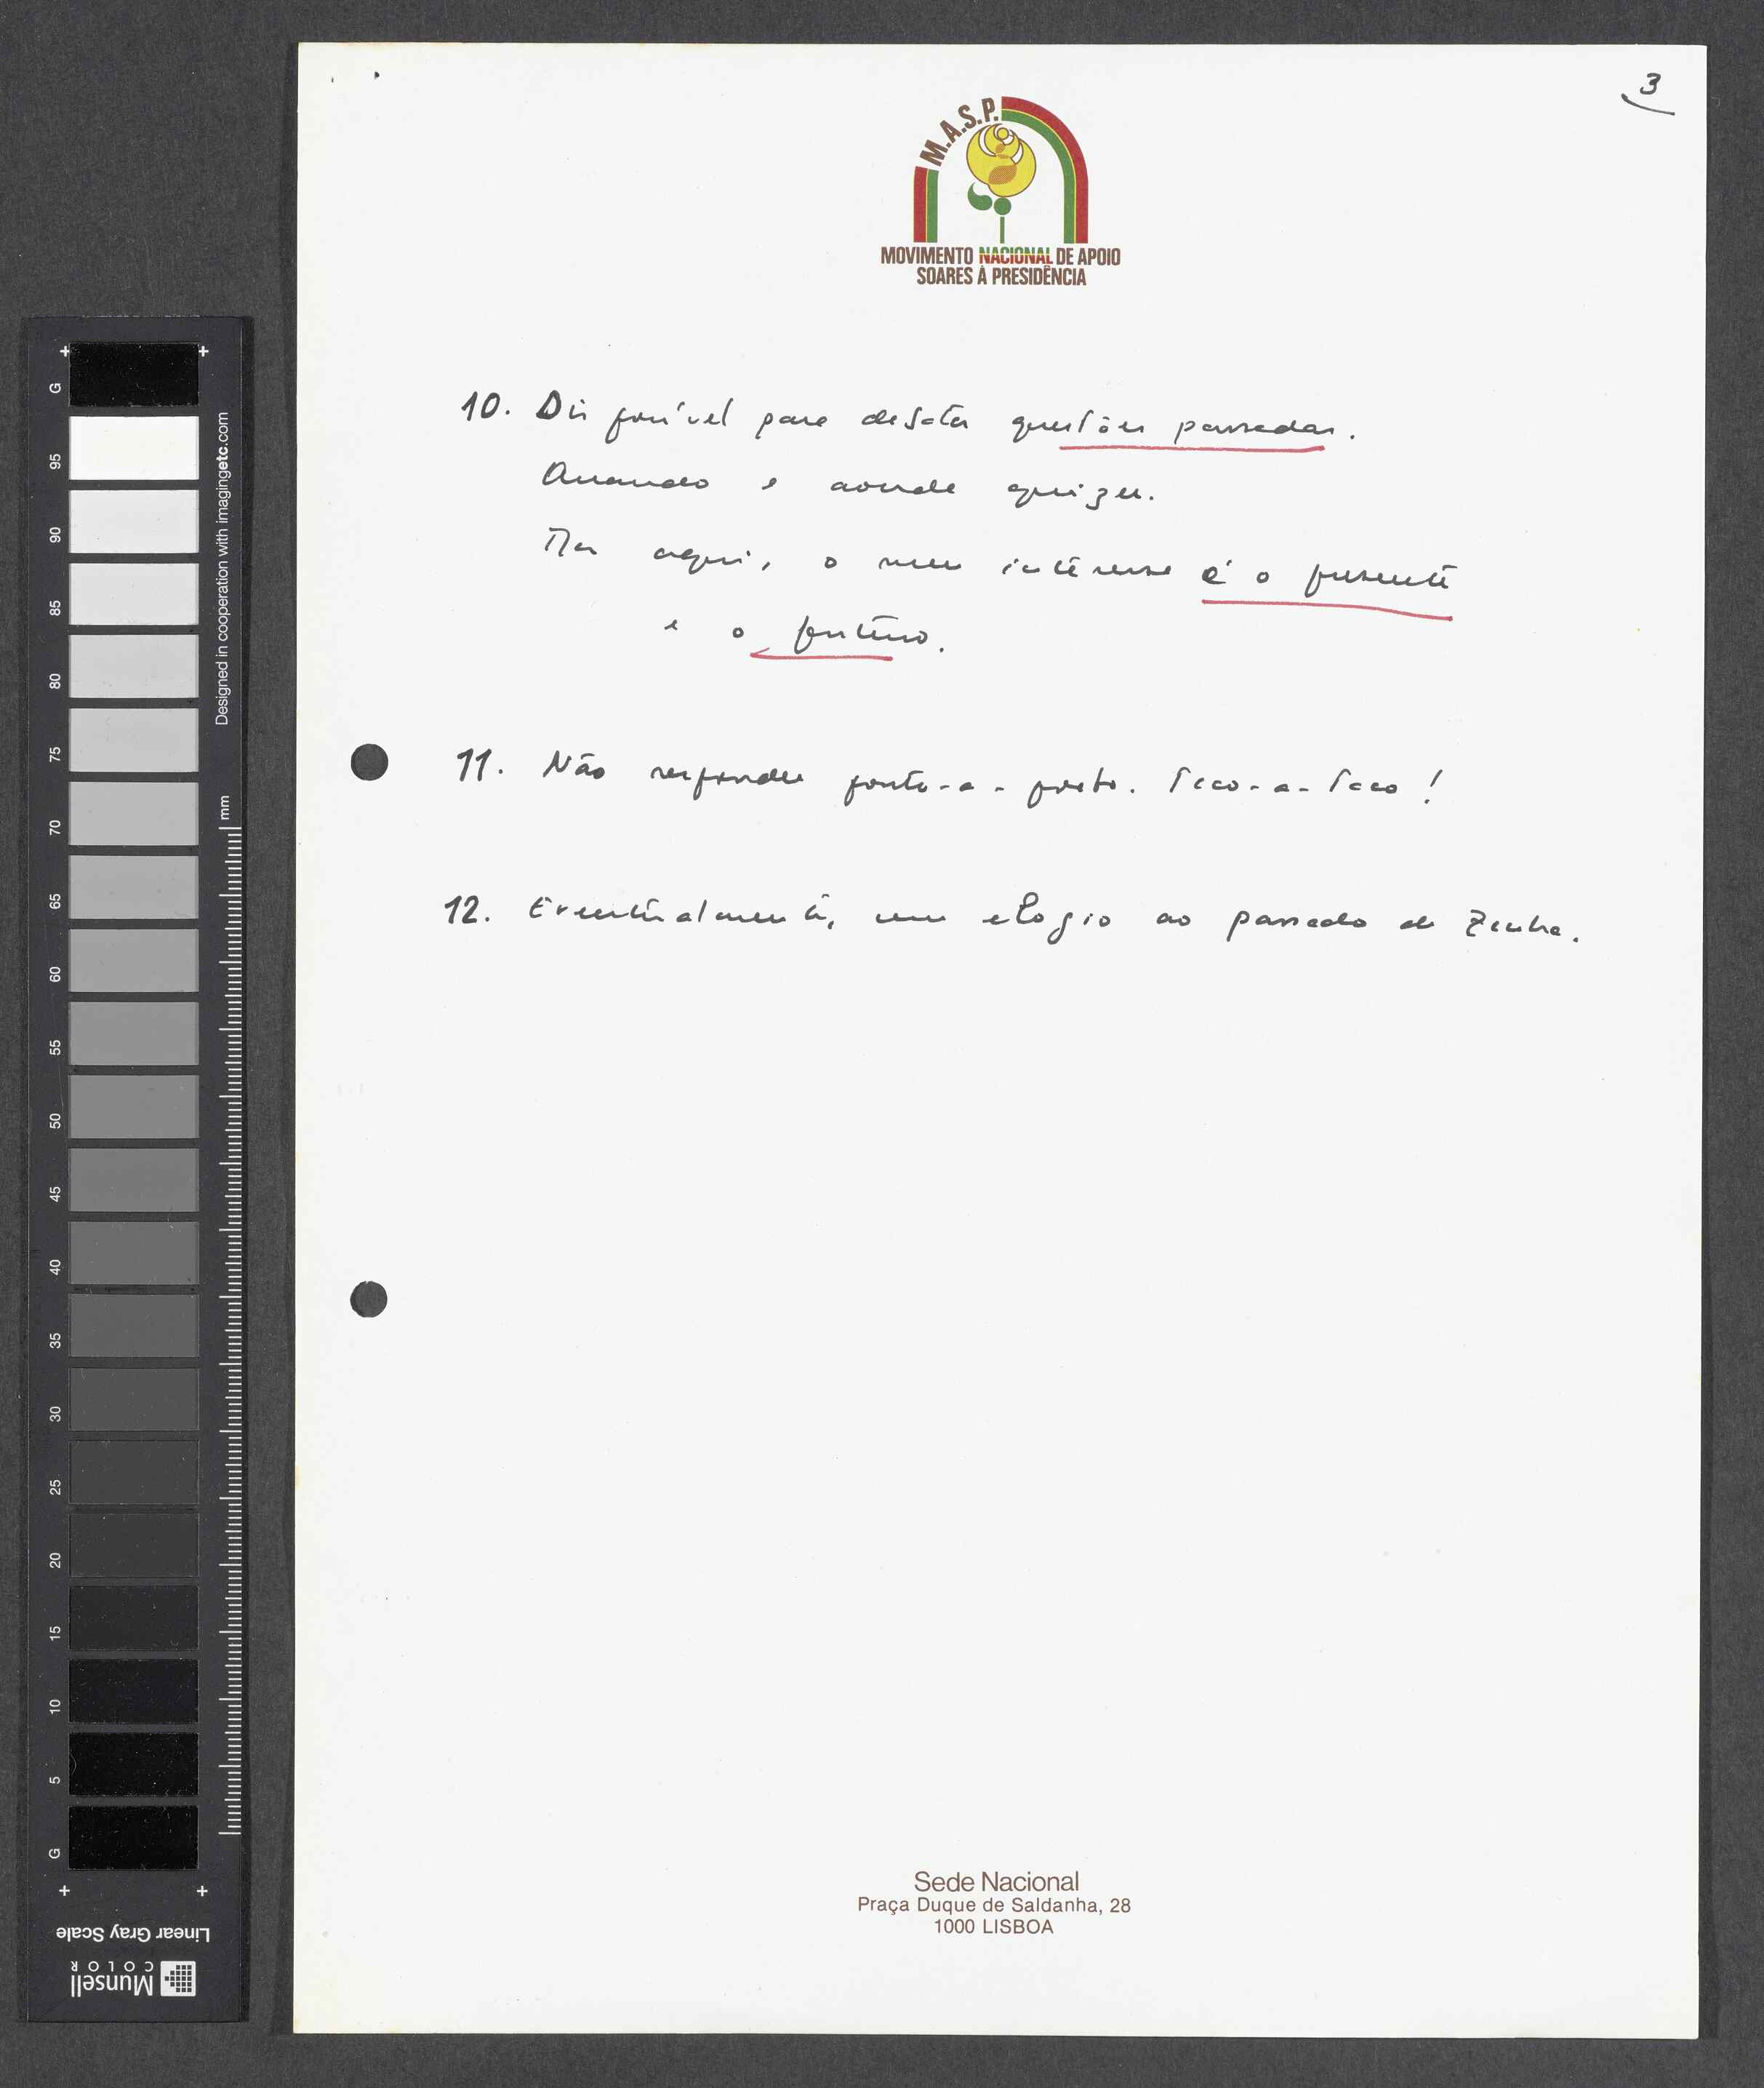 3
M.A.S.P.
MOVIMENTO NACIONAL DE APOIO
SOARES À PRESIDÊNCIA
10. Disponível para debater questões passadas.
Quando e aonde quizer.
Mas aqui, o meu interesse é o presente
e o futuro.
11. Não responder ponto-a-ponto. Taco-a-Taco!
12. Eventualmente, um elogio ao passado de Zenha.
Sede Nacional
Praça Duque de Saldanha, 28
1000 LISBOA
G
95
90
85
80
75
70
65
60
55
50
45
40
35
30
25
20
15
10
5
G
Designed in cooperation with imagingetc.com
mm
Linear Gray Scale
Munsell
COLOR